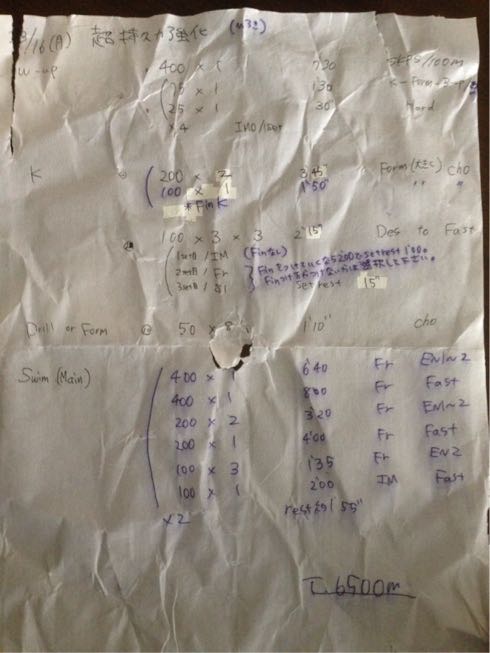 /16(月) 超持久力強化
W-up 400 × 1 7'30 SKPS/100m
(75 × 1 1'30 K-Form-B-P
25 × 1 30" Hard
×4 IMO/1set
K ◎ (200 × 2 3'45" Form(大きく) cho
100 × 1 1'50" 〃 〃
*Fin K
100 × 3 × 3 2'15" Des to Fast
(1set目/IM (Finなし)
2set目/Fr Finをつけていくなら5'200でsetrest 1'00。
3set目/S1 Finつけるかつけないかは選択して下さい。
setrest 15"
Drill or Form ◎ 50 × 8 1'10" cho
Swim (Main) (400 × 1 6'40 Fr EN1~2
400 × 1 8'00 Fr Fast
200 × 2 3'20 Fr EN1~2
200 × 1 4'00 Fr Fast
100 × 3 1'35 Fr EN2
100 × 1 2'00 IM Fast
×2 rest 55"
T. 6500m